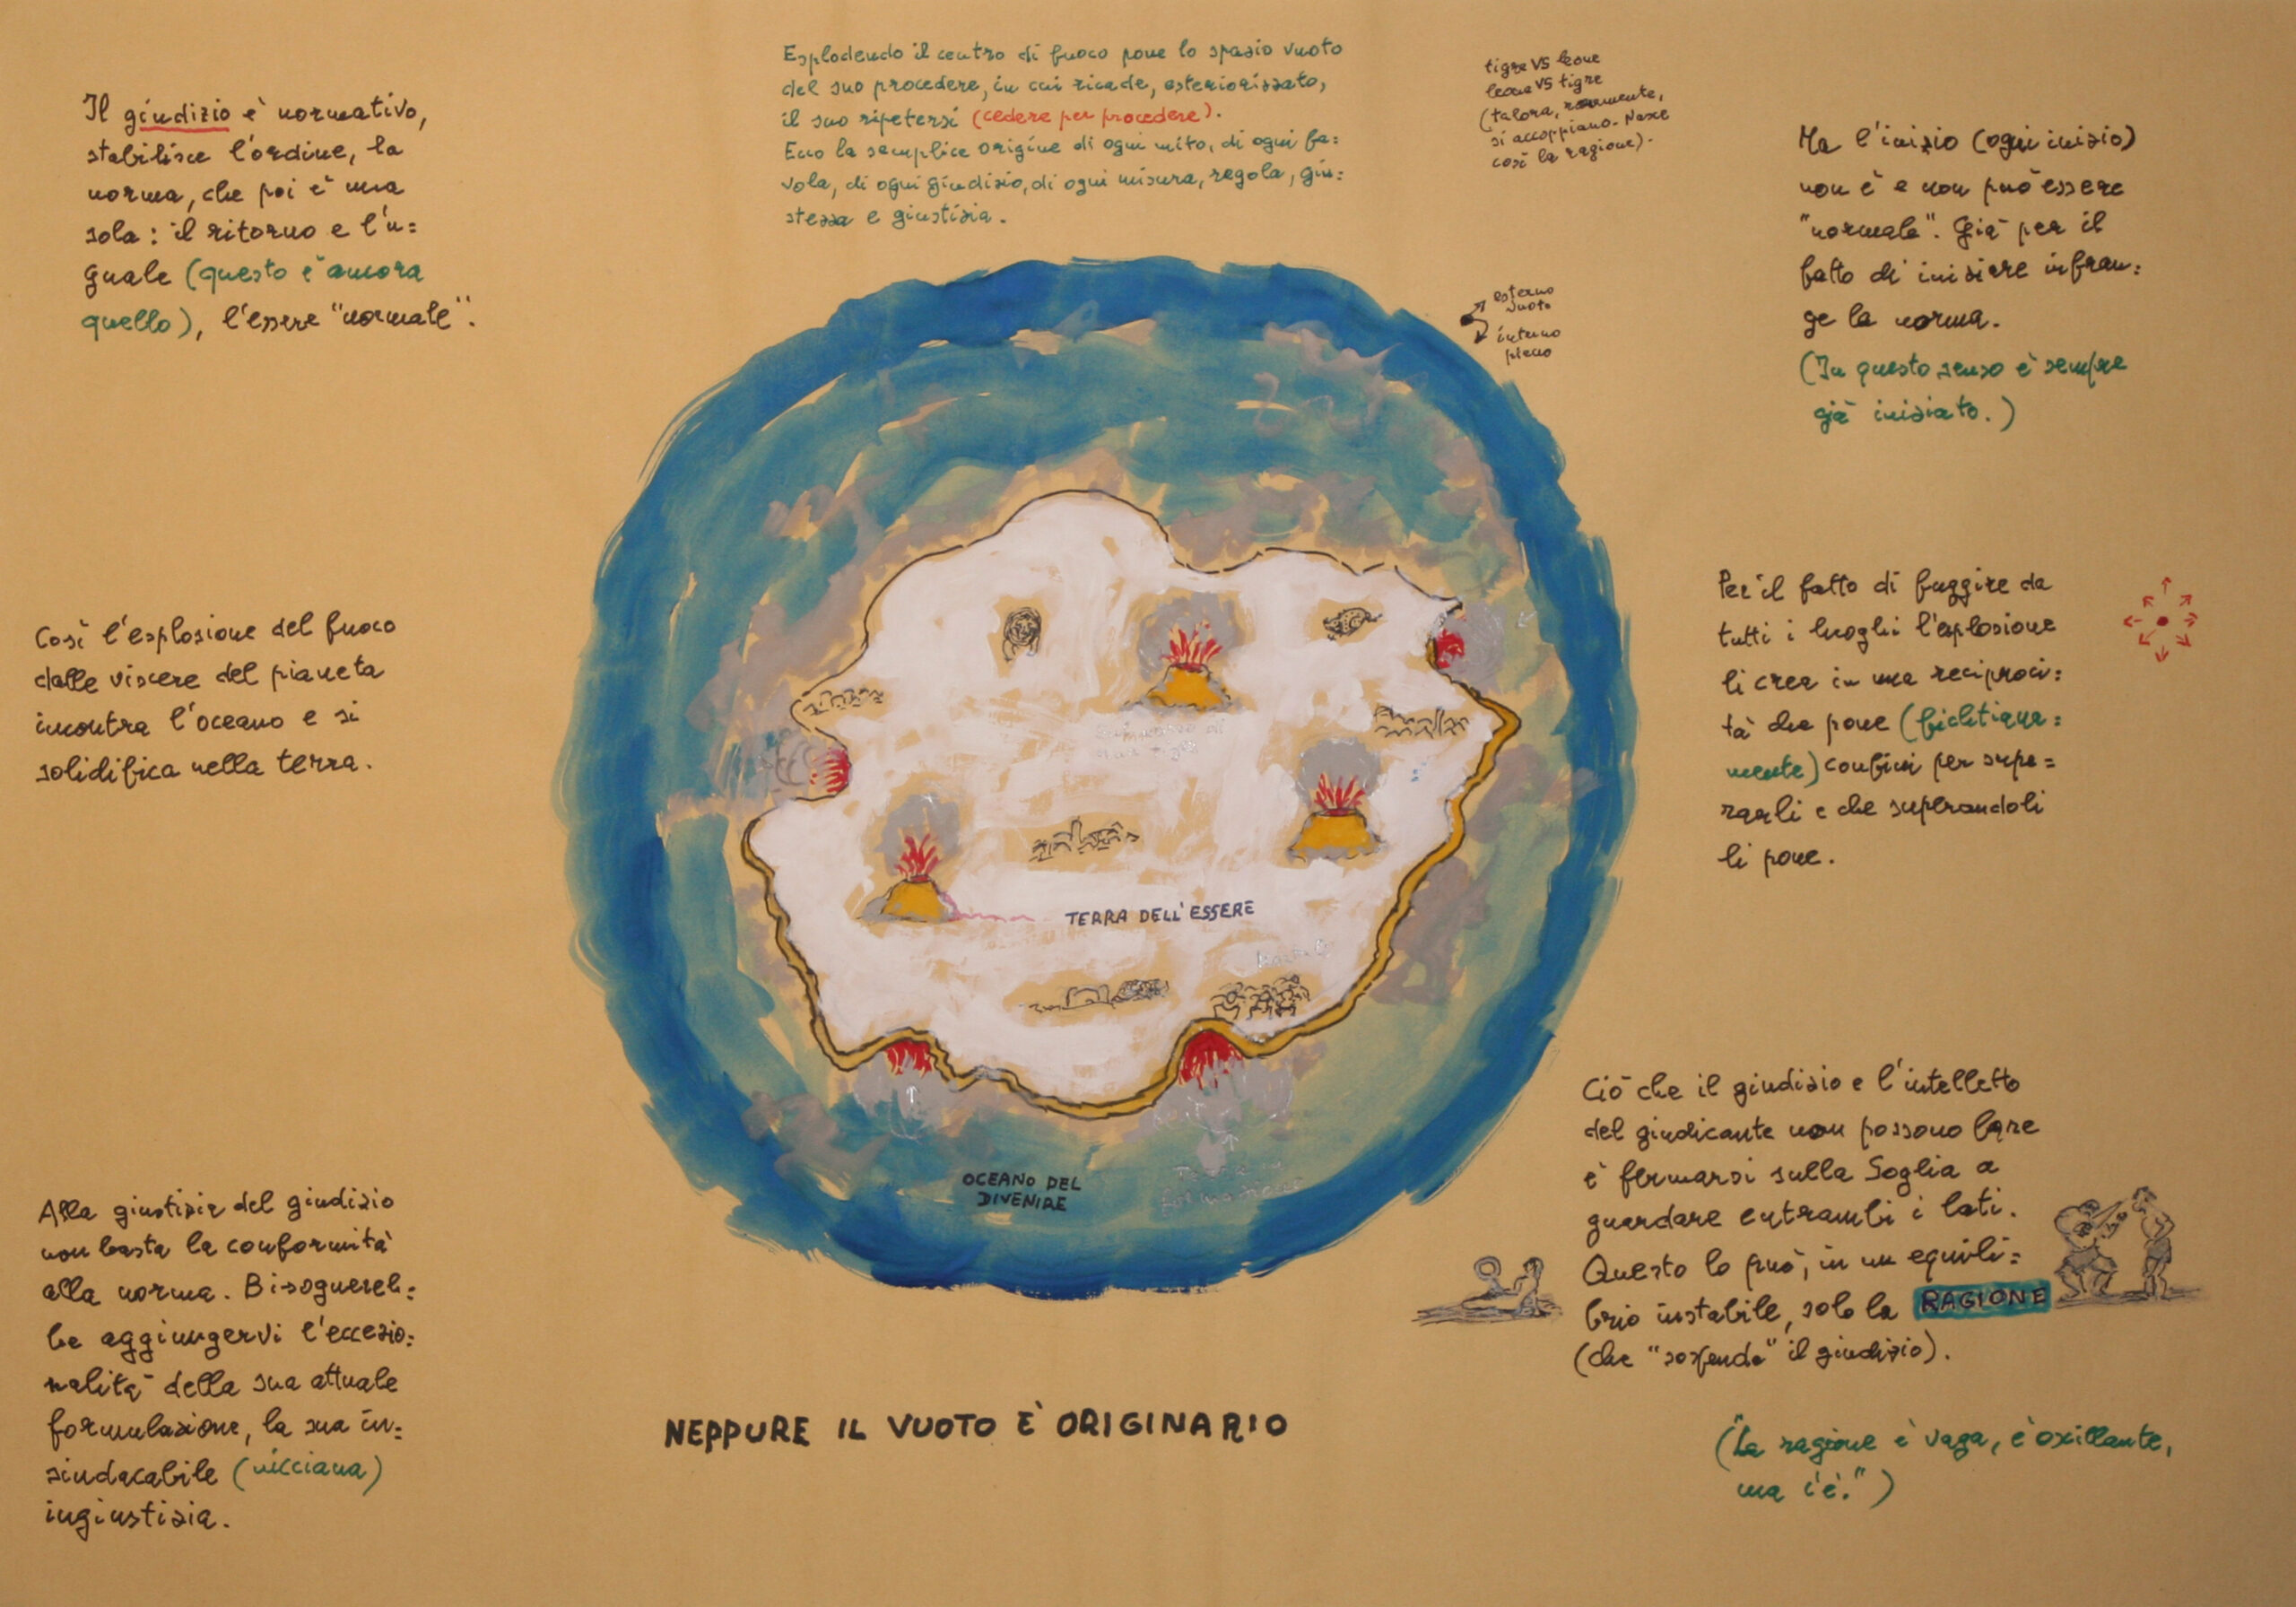 Il giudizio è normativo,
stabilisce l'ordine, la
norma, che poi è una
sola: il ritorno e l'u=
guale (questo è ancora
quello), l'essere "normale".
Così l'esplosione del fuoco
dalle viscere del pianeta
incontra l'oceano e si
solidifica nella terra.
Alla giustizia del giudizio
non basta la conformità
alla norma. Bisognereb=
be aggiungervi l'eccezio=
nalità della sua attuale
formulazione, la sua in=
sindacabile (nicciana)
ingiustizia.
Esplodendo il centro di fuoco pone lo spazio vuoto
del suo procedere, in cui ricade, esteriorizzato,
il suo ripetersi (cedere per procedere).
Ecco la semplice origine di ogni mito, di ogni fa=
vola, di ogni giudizio, di ogni misura, regola, giu=
stezza e giustizia.
tigre VS leone
leone VS tigre
(talora, raramente,
si accoppiano. Nasce
così la ragione).
esterno
vuoto
interno
pieno
TERRA DELL'ESSERE
OCEANO DEL
DIVENIRE
NEPPURE IL VUOTO È ORIGINARIO
Ma l'inizio (ogni inizio)
non è e non può essere
"normale". Già per il
fatto di iniziare infran=
ge la norma.
(In questo senso è sempre
già iniziato.)
Per il fatto di fuggire da
tutti i luoghi l'esplosione
li crea in una reciproci=
tà che pone (fichtiana=
mente) confini per supe=
rarli e che superandoli
li pone.
Ciò che il giudizio e l'intelletto
del giudicante non possono fare
è fermarsi sulla Soglia a
guardare entrambi i lati.
Questo lo può, in un equili=
brio instabile, solo la RAGIONE
(che "sospende" il giudizio).
("La ragione è vaga, è oscillante,
ma c'è.")